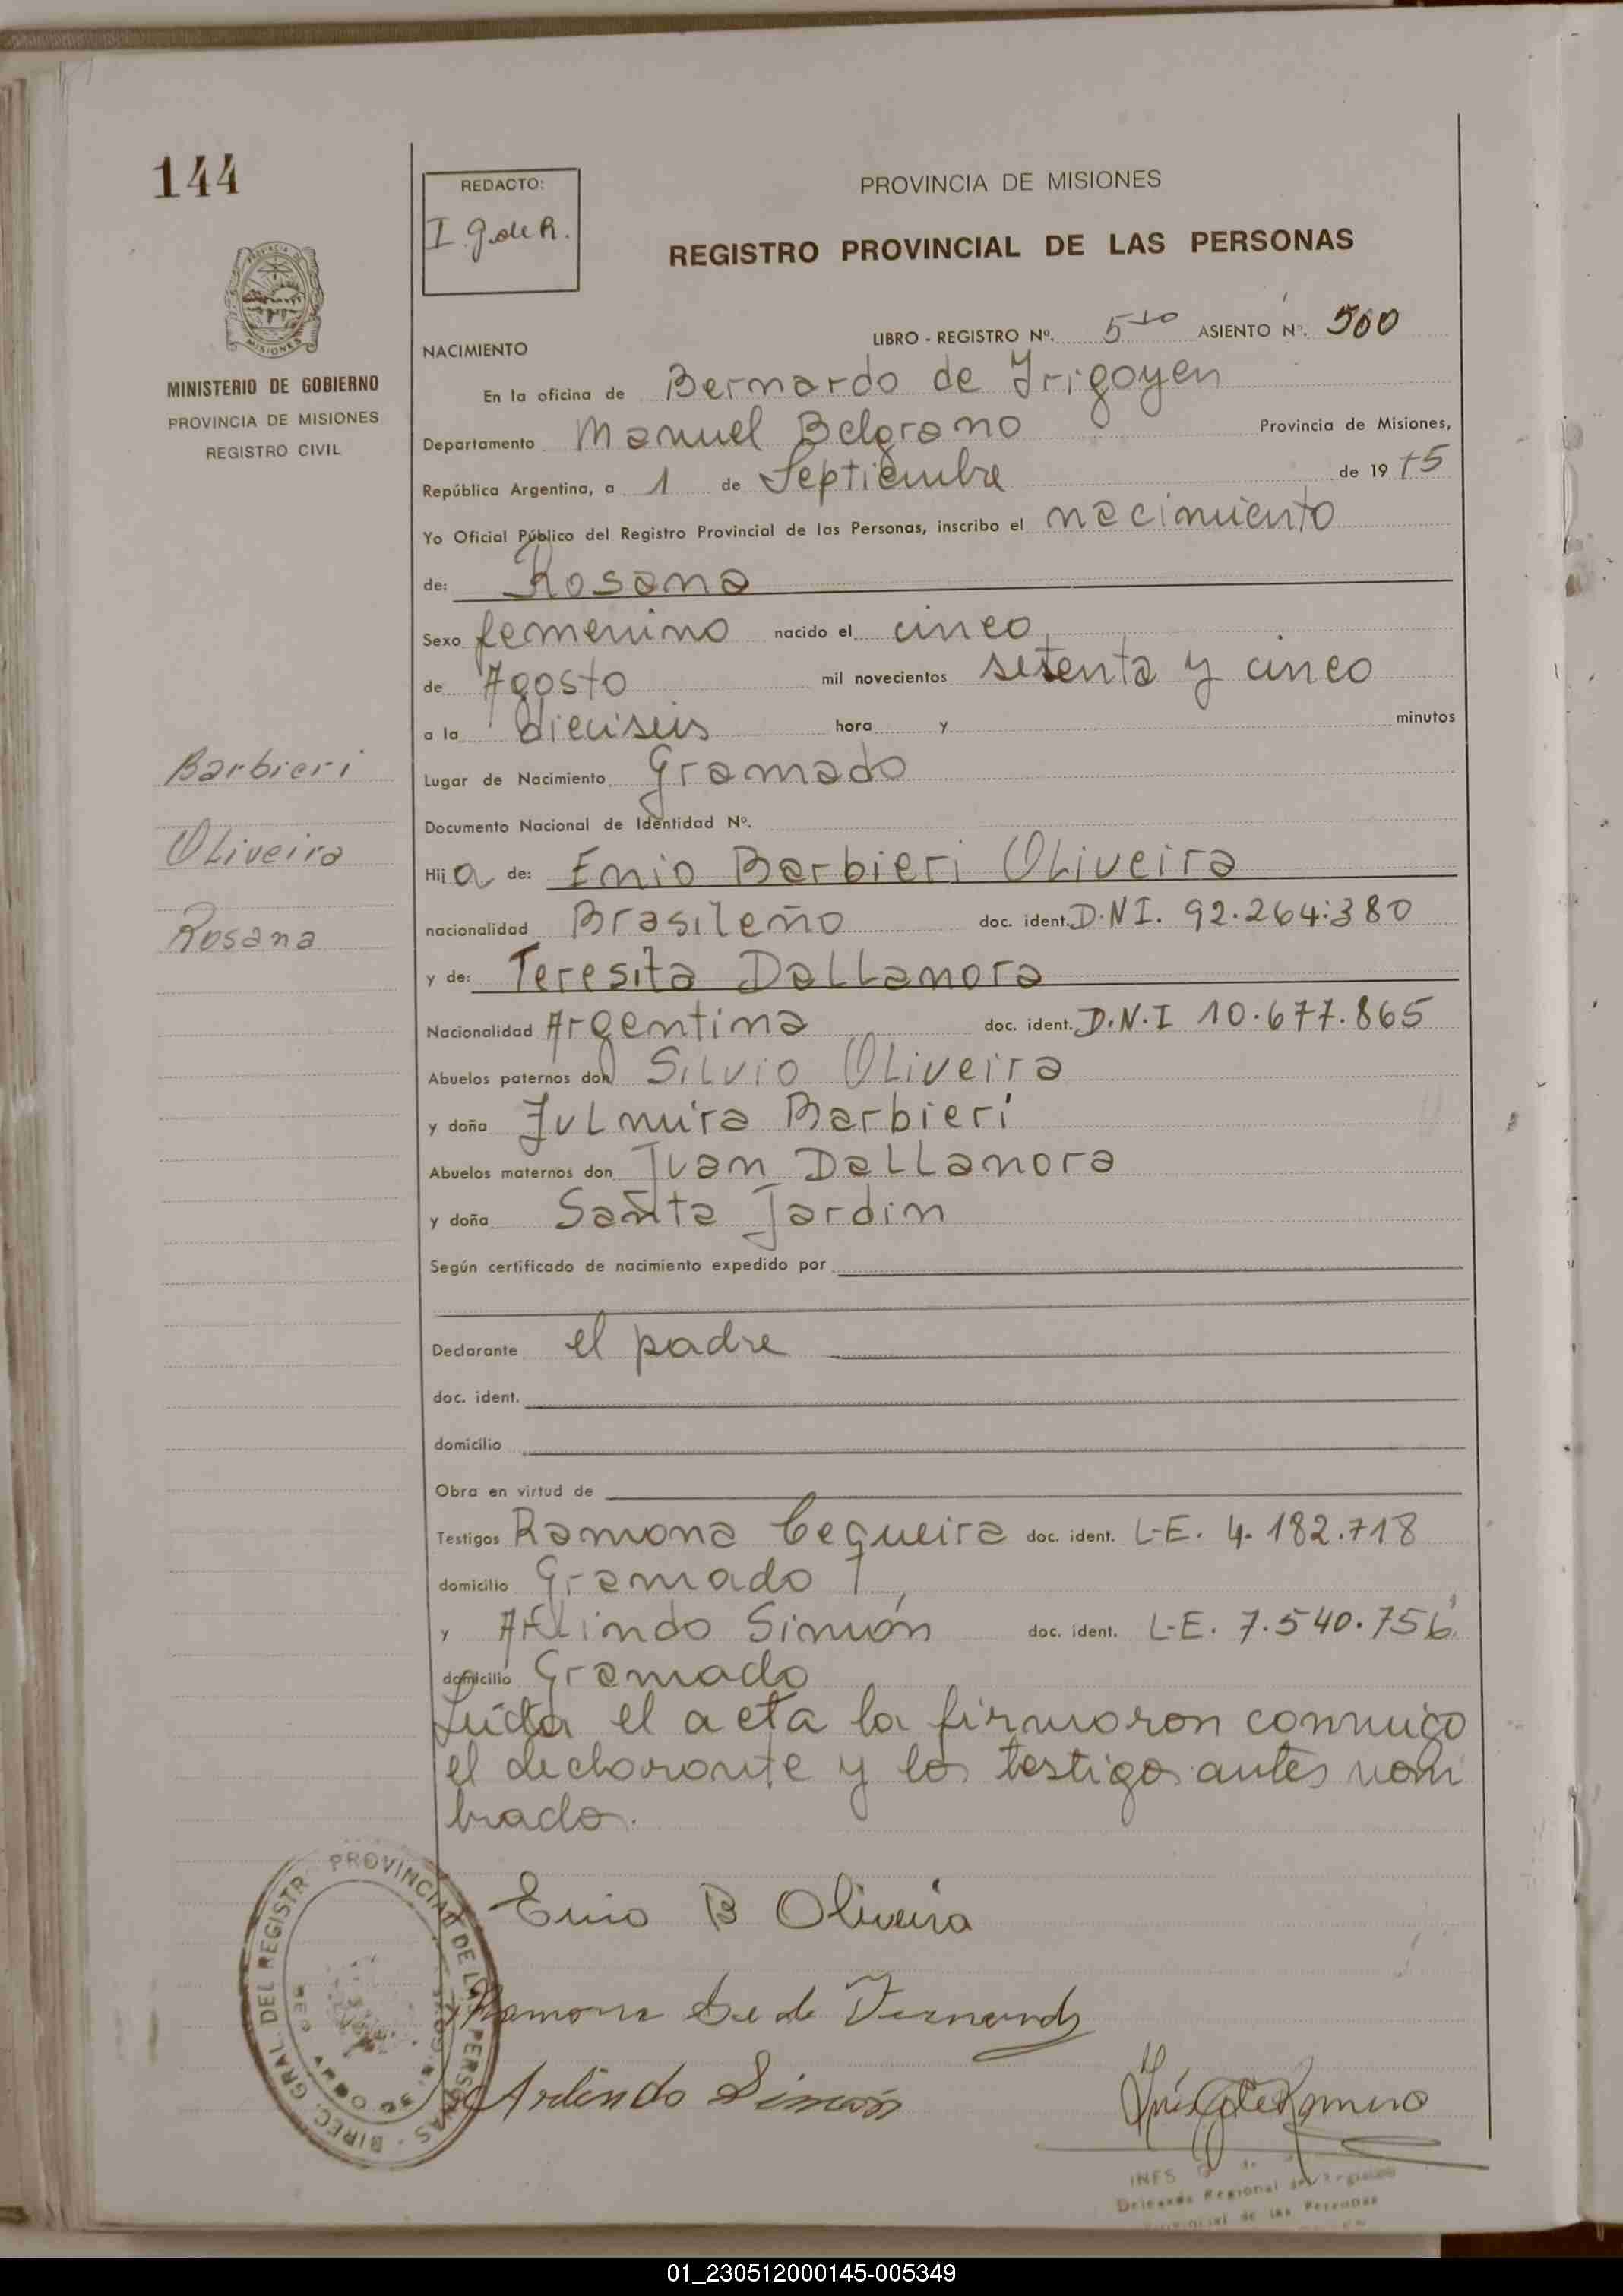 144
REDACTO:
I. G. de R.
PROVINCIA DE MISIONES
REGISTRO PROVINCIAL DE LAS PERSONAS
MISIONES
MINISTERIO DE GOBIERNO
PROVINCIA DE MISIONES
REGISTRO CIVIL
NACIMIENTO
LIBRO - REGISTRO Nº. 5 ASIENTO Nº. 500
En la oficina de Bernardo de Irigoyen
Departamento Manuel Belgrano Provincia de Misiones,
República Argentina, a 1 de Septiembre de 19 75
Yo Oficial Público del Registro Provincial de las Personas, inscribo el nacimiento
de: Rosana
Sexo femenino nacido el cinco
de Agosto mil novecientos setenta y cinco
a la dieciseis hora y minutos
Lugar de Nacimiento Gramado
Documento Nacional de Identidad Nº.
Hij a de: Enio Barbieri Oliveira
nacionalidad Brasileño doc. ident. D.N.I. 92.264.380
y de: Teresita Dallanora
Nacionalidad Argentina doc. ident. D.N.I 10.677.865
Abuelos paternos don Silvio Oliveira
y doña Julmira Barbieri
Abuelos maternos don Juan Dallanora
y doña Santa Jardin
Según certificado de nacimiento expedido por
Declarante el padre
doc. ident.
domicilio
Obra en virtud de
Testigos Ramona Cequeira doc. ident. L-E. 4.182.718
domicilio Gramado
y Arlindo Simón doc. ident. L-E. 7.540.756
domicilio Gramado
Leida el acta la firmaron conmigo
el declarante y los testigos antes nom
brados.
Barbieri
Oliveira
Rosana
Enio B Oliveira
Ramona de
Arlindo Simón
DIREC. GRAL. DEL REGISTR. PROVINCIAL DE LAS PERSONAS
Inés G de Romero
INES G. de
Delegada Regional del Registro
Provincial de las Personas
01_230512000145-005349